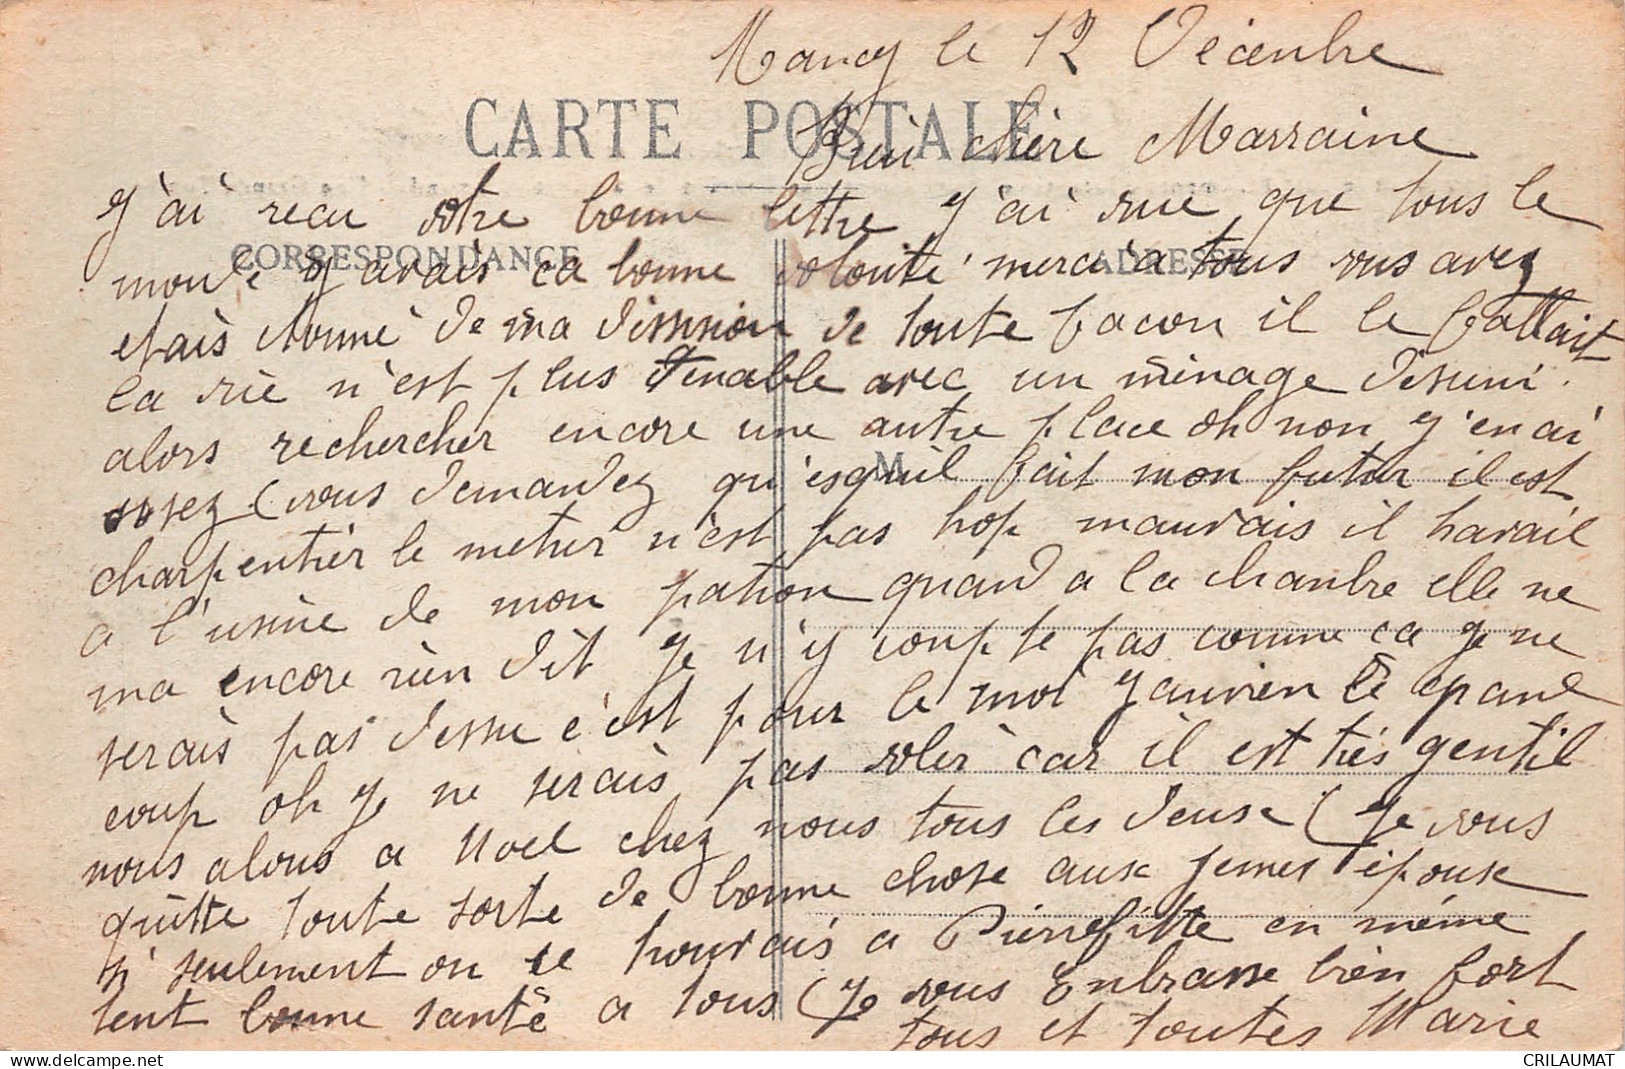 Nancy le 12 Décenbre
CARTE POSTALE
chère Marraine
J'ai recu votre bonne lettre j'ai vue que tous le
CORRESPONDANCE
ADRESSE
monde y avais ca bonne volonté merci a tous vous avez
etais etonné de ma dission de toute facon il le fallait
la vie n'est plus tenable avec un ménage desuni.
alors rechercher encore une autre place oh non j'en ai
assez (vous demandez qu'esqu'il fait mon futur il est
M
charpentier le metier n'est pas trop mauvais il travail
a l'usine de mon patron quand a la chanbre elle ne
ma encore rien dit je n'y conpte pas comme ca je ne
serais pas dessu c'est pour le moi Janvier le grand
coup oh je ne serais pas volér car il est trés gentil
nous alons a Noel chez nous tous les deux (je vous
quitte toute sorte de bonne chose aux jemes époux
si seulement on ce trouvais a Pierrefitte en même
tent bonne santé a tous (je vous Enbrasse bien fort
tous et toutes Marie
CRILAUMAT